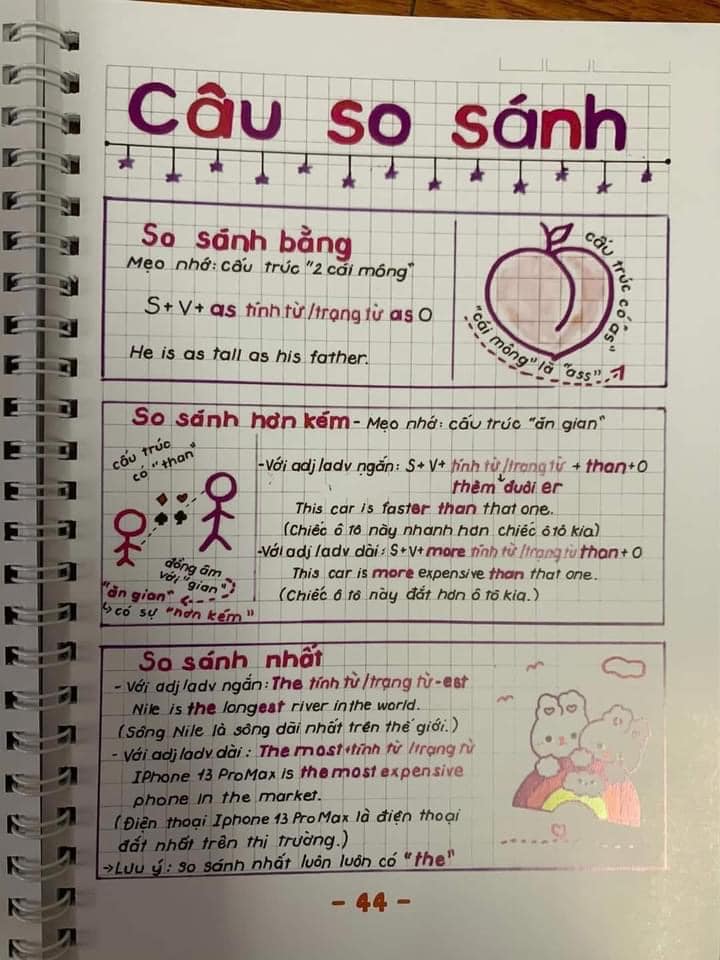 Câu so sánh
So sánh bằng
Mẹo nhớ: cấu trúc "2 cái mông"
S+V+ as tính từ/trạng từ as O
He is as tall as his father.
cấu trúc có "as"
"cái mông" là "ass"
So sánh hơn kém - Mẹo nhớ: cấu trúc "ăn gian"
cấu trúc
có "than"
đồng âm
với "gian"
"ăn gian"
↳ có sự "hơn kém"
-Với adj/adv ngắn: S+V+ tính từ/trạng từ + than+O
thêm đuôi er
This car is faster than that one.
(Chiếc ô tô này nhanh hơn chiếc ô tô kia)
-Với adj/adv dài: S+V+more tính từ/trạng từ than+O
This car is more expensive than that one.
(Chiếc ô tô này đắt hơn ô tô kia.)
So sánh nhất
- Với adj/adv ngắn: The tính từ/trạng từ-est
Nile is the longest river in the world.
(Sông Nile là sông dài nhất trên thế giới.)
- Với adj/adv dài: The most+tính từ/trạng từ
IPhone 13 ProMax is the most expensive
phone in the market.
(Điện thoại Iphone 13 ProMax là điện thoại
đắt nhất trên thị trường.)
→Lưu ý: so sánh nhất luôn luôn có "the"
- 44 -